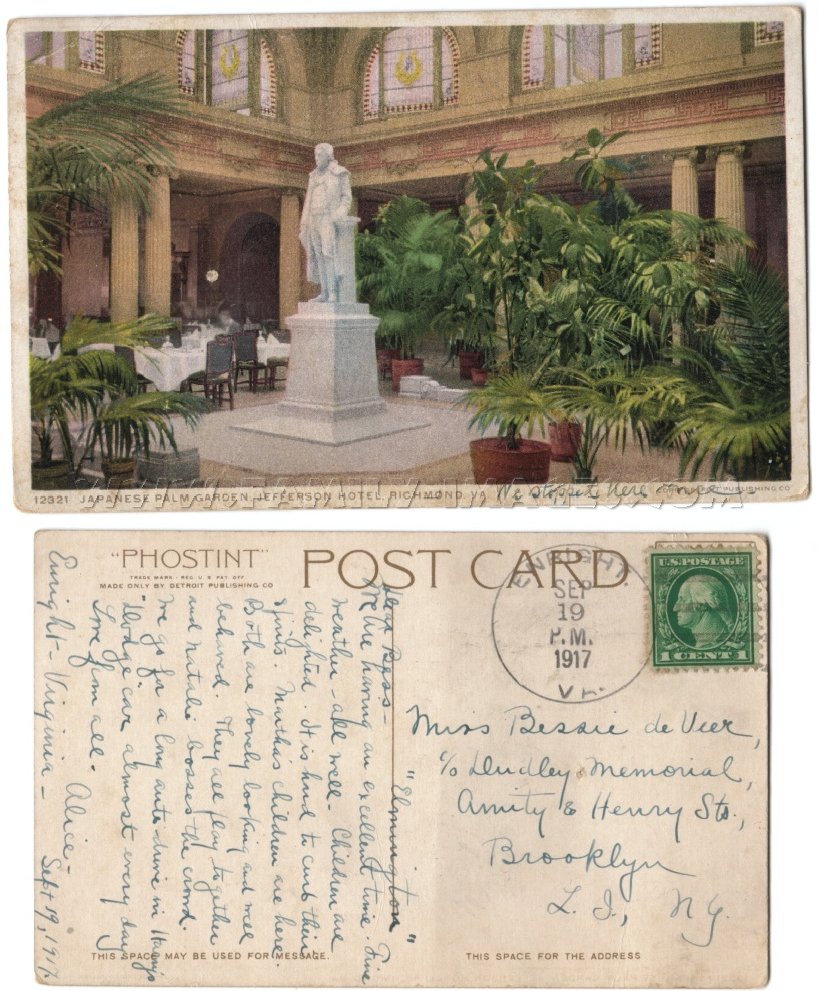 12321 JAPANESE PALM GARDEN, JEFFERSON HOTEL, RICHMOND, VA.
We stopped here once
PUBLISHING CO
WWW.FAMILY-IMAGES.COM
"PHOSTINT"
TRADE MARK - REG. U S PAT. OFF
MADE ONLY BY DETROIT PUBLISHING CO
POST CARD
"Elmington"
Dear Bess —
We're having an excellent time. Fine
weather – all well. Children are
delighted. It is hard to curb their
spirits. Martha's children are here.
Both are lovely looking and well
behaved. They all play together
and Natalie bosses the crowd.
We go for a long auto drive in
Dodge car almost every day
Love from all.
Alice –
Enright – Virginia – Sept 19, 1917.
THIS SPACE MAY BE USED FOR MESSAGE.
ENRIGHT
SEP
19
P.M.
1917
VA.
U.S. POSTAGE
1 CENT 1
Miss Bessie de Veer,
c/o Dudley Memorial,
Amity & Henry Sts.,
Brooklyn
L. I., N.Y.
THIS SPACE FOR THE ADDRESS